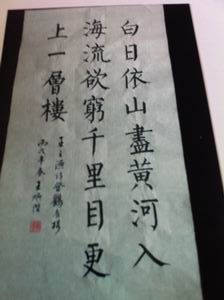 白日依山盡黃河入
海流欲窮千里目更
上一層樓
王之渙詩登鸛雀樓